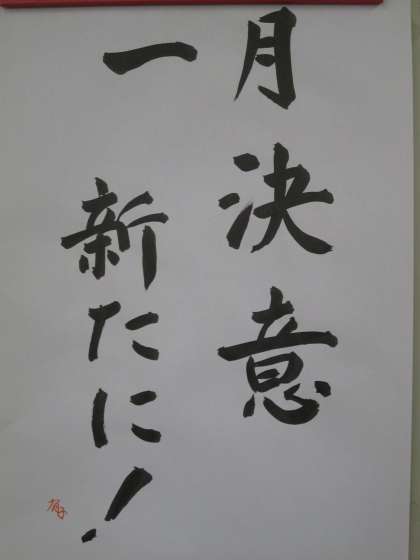 一月
決意
新たに!